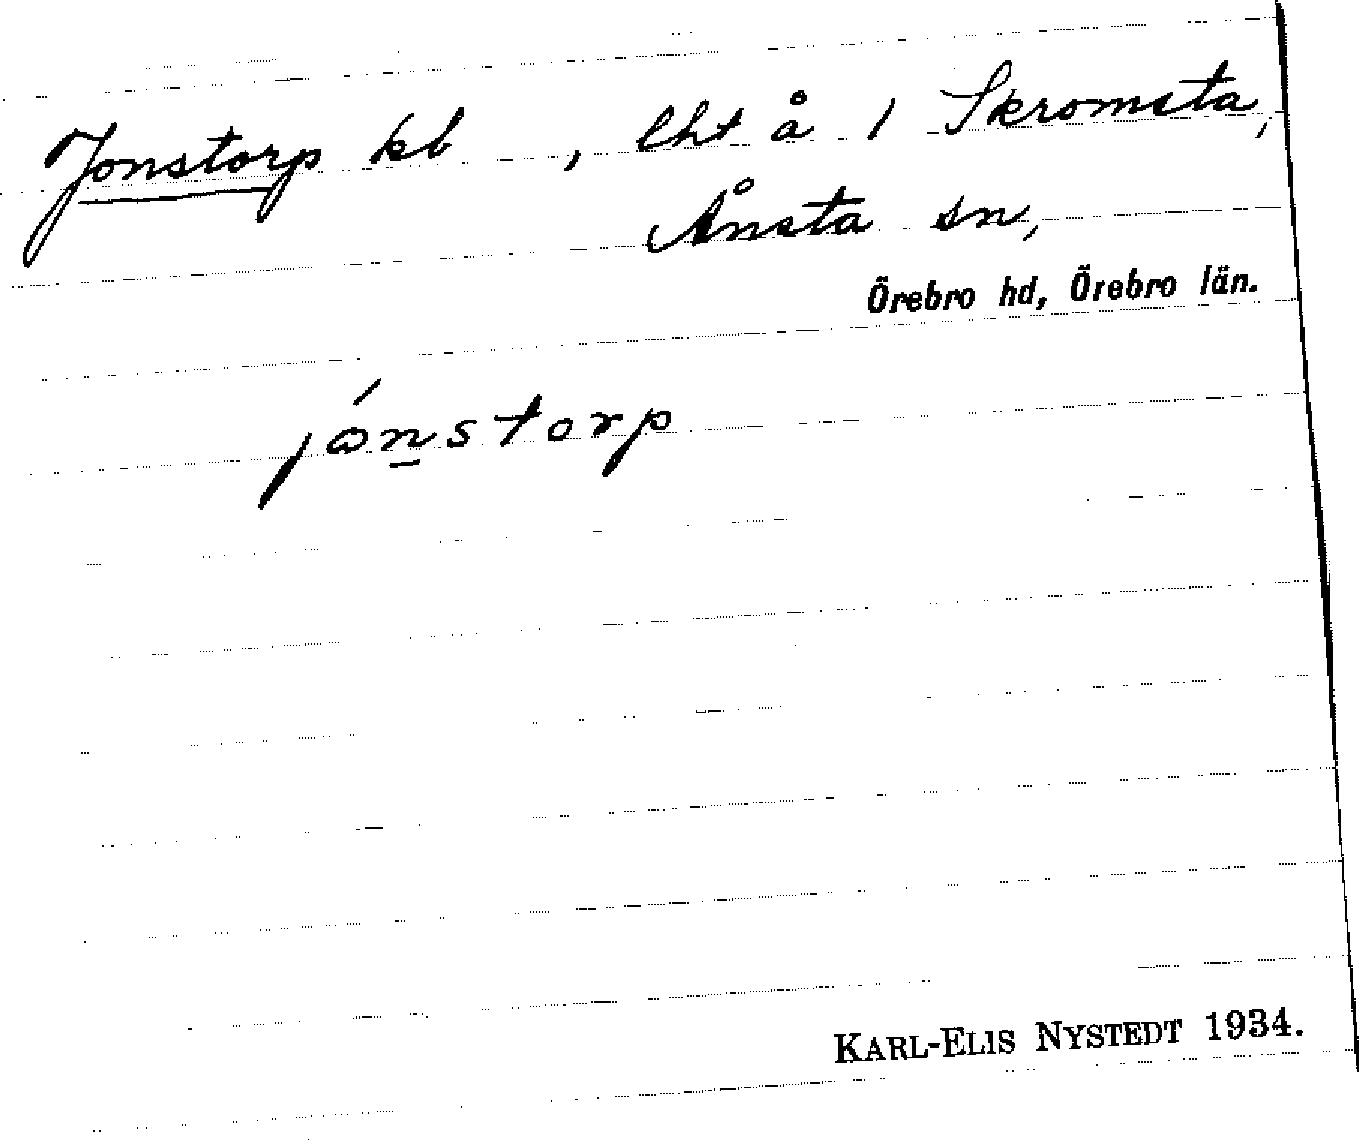 Jonstorp kl , lht å 1 Skromsta,
Ånsta sn,
Örebro hd, Örebro län.
jónstorp
KARL-ELIS NYSTEDT 1934.